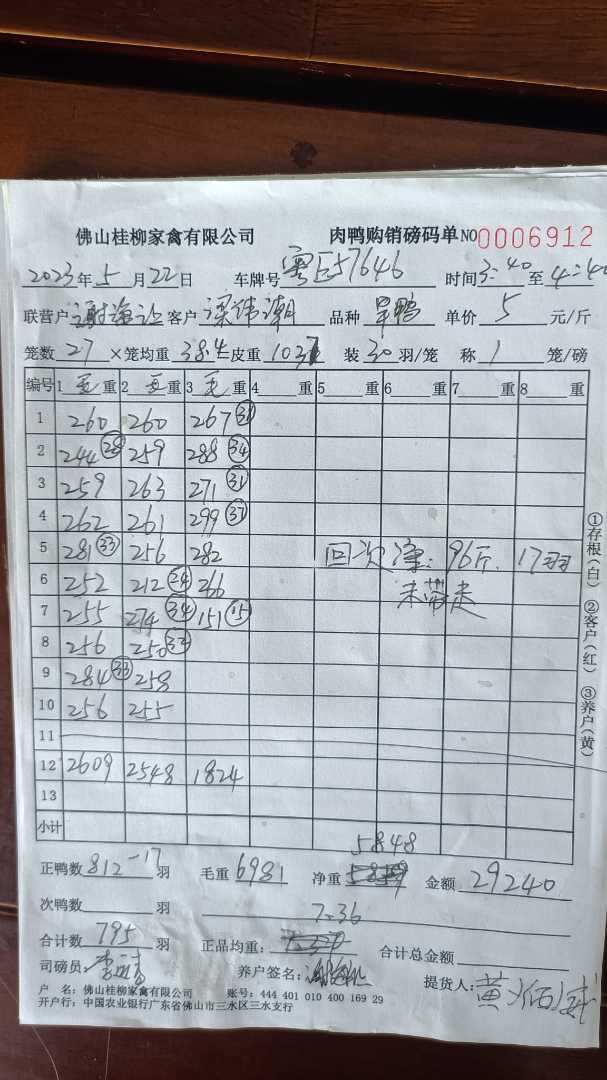 佛山桂柳家禽有限公司 肉鸭购销磅码单 NO 0006912
2023年5月22日 车牌号 粤E57646 时间3:40至4:40
联营户 客户 品种 旱鸭 单价 5 元/斤
笼数 27 ×笼均重 38.4 皮重 1037 装 30 羽/笼 称 1 笼/磅
编号 1 毛 重 2 毛 重 3 毛 重 4 重 5 重 6 重 7 重 8 重
1 260 260 267 (31)
2 244 (28) 259 288 (34)
3 259 263 271 (31)
4 262 261 299 (37)
5 281 (33) 256 282 回次净:96斤. 17羽
6 252 212 (24) 266 未带走
7 255 274 (34) 151 (15)
8 256 250
9 284 (33) 258
10 256 255
11
12 2609 2548 1824
13
小计
5848
正鸭数 812-17 羽 毛重 6981 净重 金额 29240
次鸭数 羽 7.36
合计数 795 羽 正品均重: 合计总金额
司磅员: 养户签名: 提货人:黄
户 名:佛山桂柳家禽有限公司 账号:444 401 010 400 169 29
开户行:中国农业银行广东省佛山市三水区三水支行
①存根(白) ②客户(红) ③养户(黄)